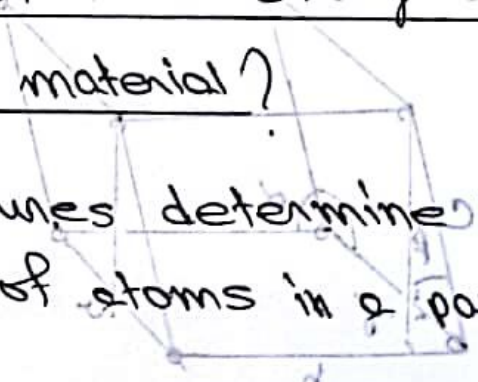 material?
unes determine
of atoms in a pa